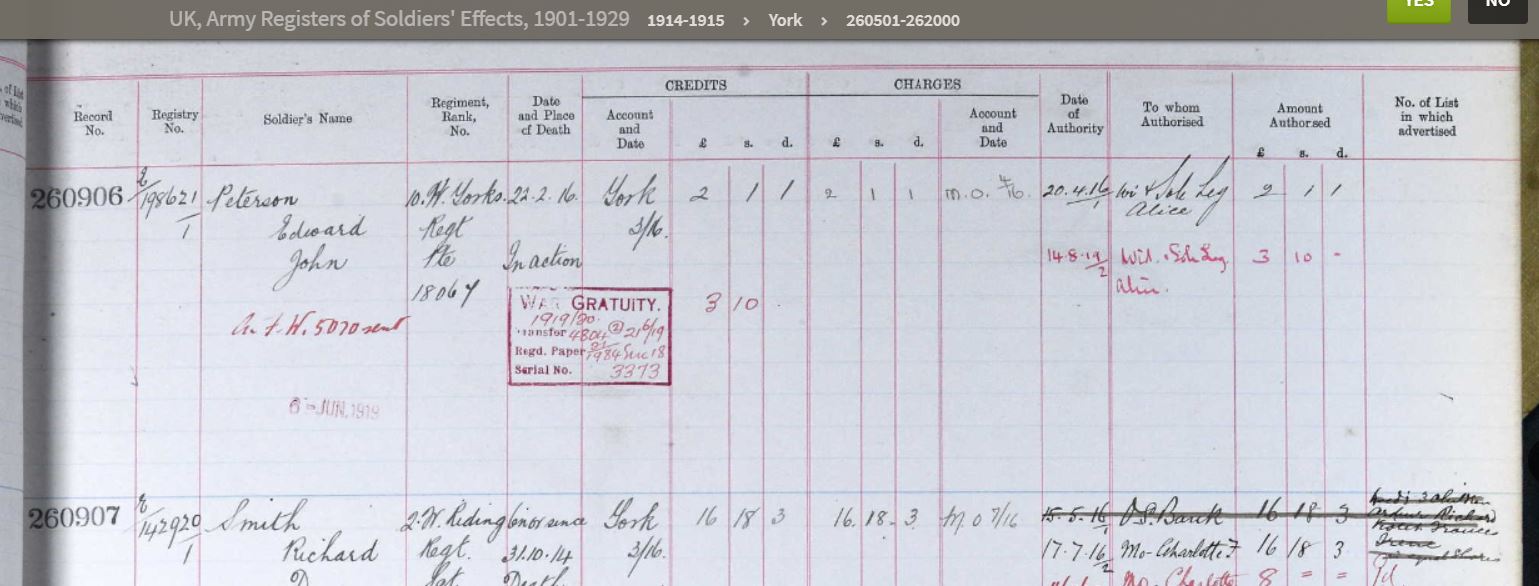 UK, Army Registers of Soldiers' Effects, 1901-1929 1914-1915 › York › 260501-262000
YES NO
of List
which
CREDITS CHARGES
Record No. Registry No. Soldier's Name Regiment, Rank, No. Date and Place of Death Account and Date £ s. d. £ s. d. Account and Date Date of Authority To whom Authorised Amount Authorised £ s. d. No. of List in which advertised
260906 198621 Peterson 10. W. Yorks. 22.2.16. York 2 1 1 2 1 1 M.O. 4/16. 20.4.16 Wi & Sole Leg 2 1 1
1 Edward Regt 3/16. Alice
John Pte In action 14.8.19 Wid. & Sole Leg. 3 10 -
18067 Alice.
WAR GRATUITY. 3 10
A.F.W. 5070 sent 1919/20.
Transfer 4804 21 6/19
Regd. Paper
Serial No. 3373
6 - JUN. 1919
260907 142920 Smith 2. W. Riding on or since York 16 18 3 16. 18. 3 M.O 7/16 15.5.16 O.S. Bank 16 18 3
1 Richard Regt. 31.10.14 3/16. 17.7.16 Mo- Charlotte F 16 18 3
D Sgt Death Mo- Charlotte 8 = =